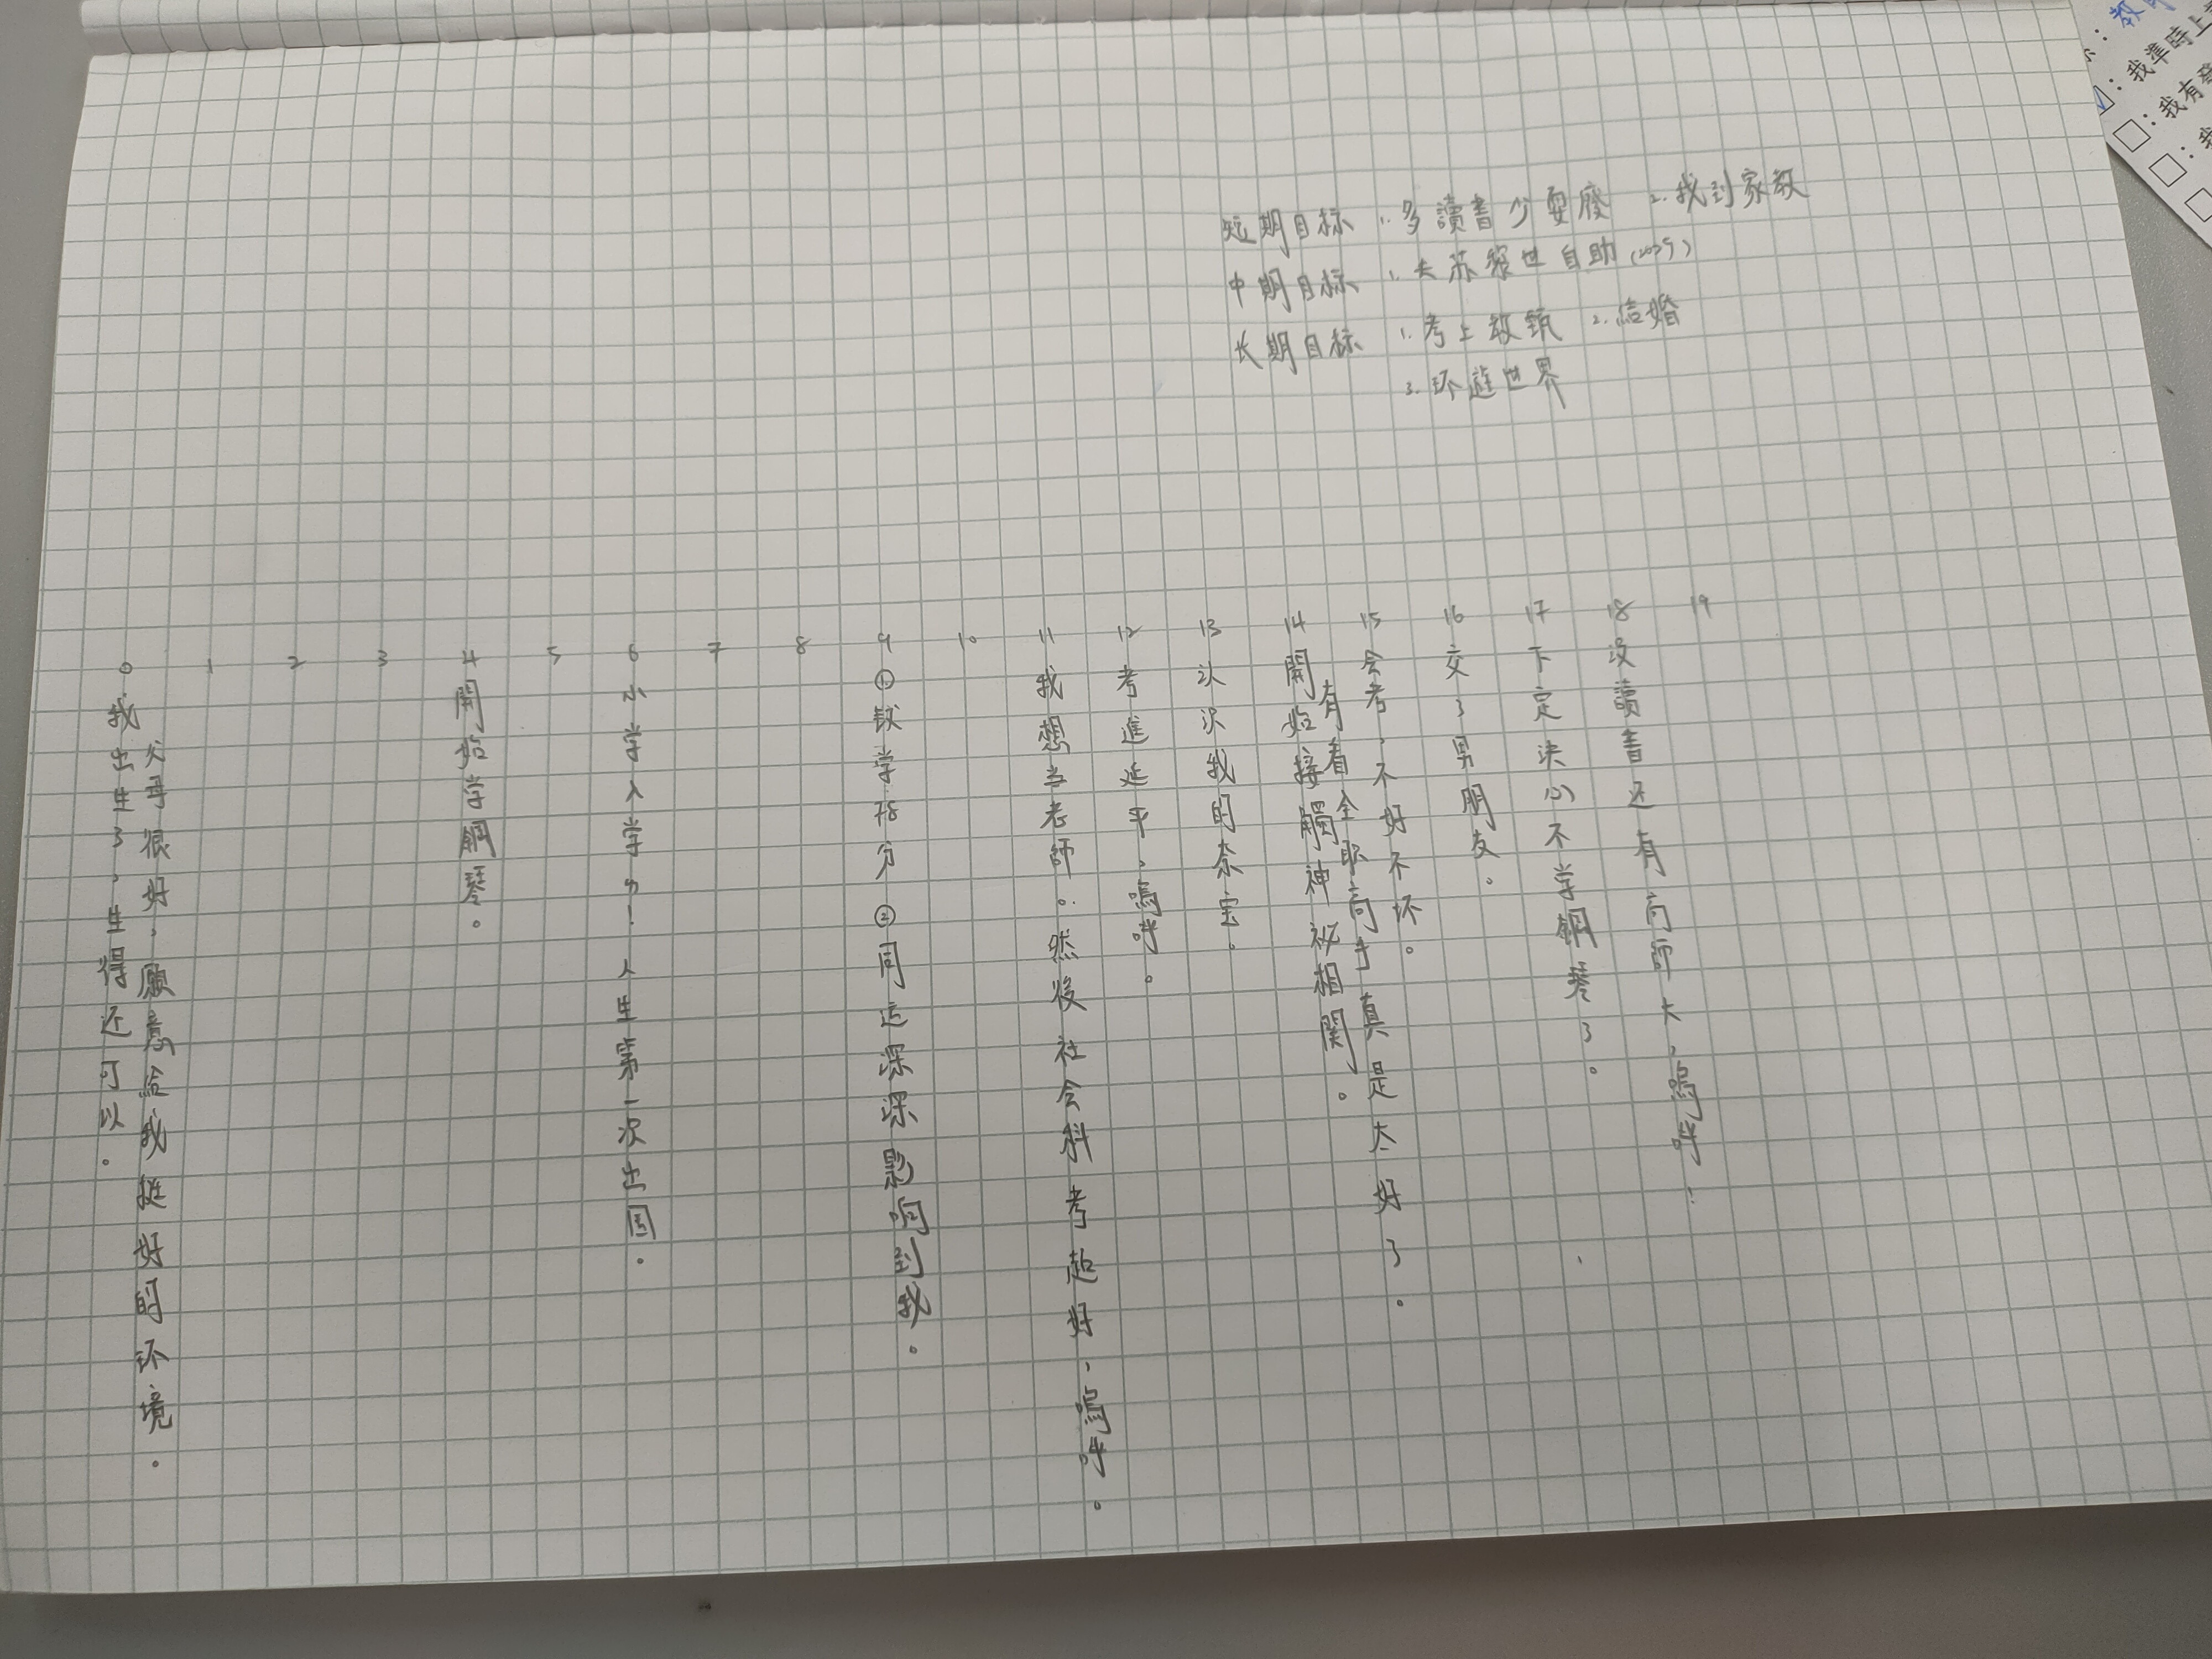 短期目标 1.多讀書少耍廢 2.找到家教
中期目标 1.去苏黎世自助(2025)
长期目标 1.考上教甄 2.结婚
3.环遊世界
0 我出生了,生得还可以。
父母很好,願意给我挺好的环境。
1
2
3
4 開始学鋼琴。
5
6 小学入学了!人生第一次出国。
7
8
9 ①数学78分 ②同 深深影响到我。
10
11 我想当老師。然後社会科考超好,嗚呼。
12 考進延平,嗚呼。
13 认识我的奈宝。
14 開始接觸神祕相関。
有着全职高手真是太好了。
15 会考,不好不坏。
16 交了男朋友。
17 下定决心不学鋼琴了。
18 没讀書还有高師大,嗚呼!
19
教師
:我準時上
:我有
:我